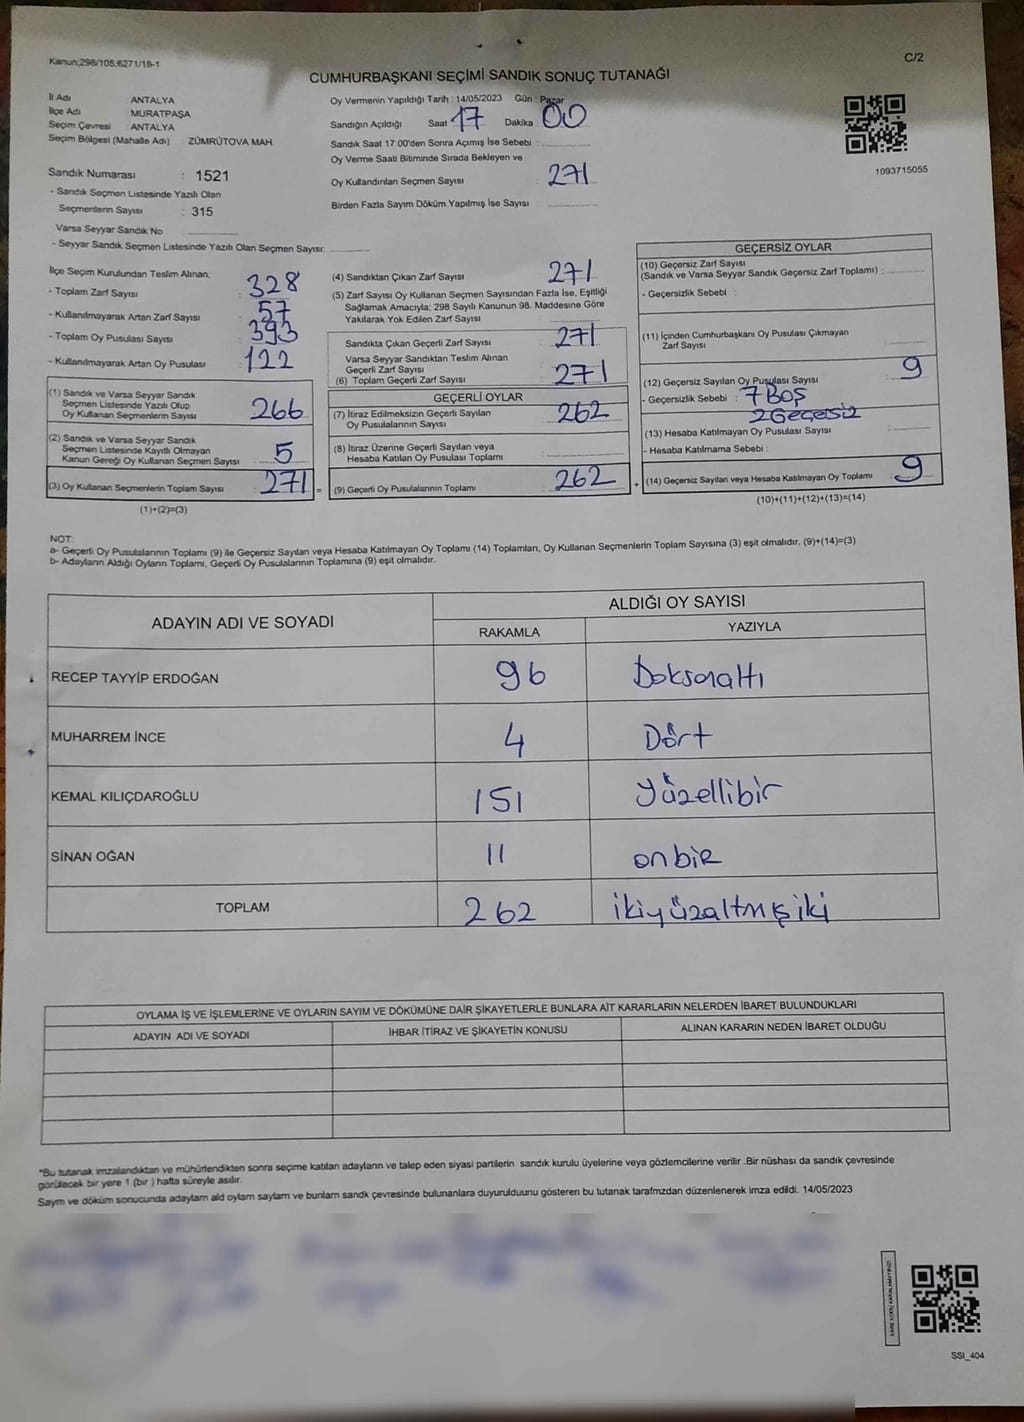 Kanun;298/105,6271/18-1
C/2
CUMHURBAŞKANI SEÇİMİ SANDIK SONUÇ TUTANAĞI
İl Adı ANTALYA
İlçe Adı MURATPAŞA
Seçim Çevresi ANTALYA
Seçim Bölgesi (Mahalle Adı) ZÜMRÜTOVA MAH.
Sandık Numarası : 1521
- Sandık Seçmen Listesinde Yazılı Olan
Seçmenlerin Sayısı : 315
Varsa Seyyar Sandık No
- Seyyar Sandık Seçmen Listesinde Yazılı Olan Seçmen Sayısı:
Oy Vermenin Yapıldığı Tarih : 14/05/2023 Gün : Pazar
Sandığın Açıldığı Saat 17 Dakika 00
Sandık Saat 17:00'den Sonra Açımış İse Sebebi :
Oy Verme Saati Bitiminde Sırada Bekleyen ve
Oy Kullandırılan Seçmen Sayısı : 271
Birden Fazla Sayım Döküm Yapılmış İse Sayısı
1093715055
İlçe Seçim Kurulundan Teslim Alınan;
- Toplam Zarf Sayısı : 328
- Kullanılmayarak Artan Zarf Sayısı : 57
- Toplam Oy Pusulası Sayısı : 393
- Kullanılmayarak Artan Oy Pusulası : 122
(1) Sandık ve Varsa Seyyar Sandık
Seçmen Listesinde Yazılı Olup
Oy Kullanan Seçmenlerin Sayısı 266
(2) Sandık ve Varsa Seyyar Sandık
Seçmen Listesinde Kayıtlı Olmayan
Kanun Gereği Oy Kullanan Seçmen Sayısı 5
(3) Oy Kullanan Seçmenlerin Toplam Sayısı 271 =
(1)+(2)=(3)
(4) Sandıktan Çıkan Zarf Sayısı : 271
(5) Zarf Sayısı Oy Kullanan Seçmen Sayısından Fazla İse, Eşitliği
Sağlamak Amacıyla; 298 Sayılı Kanunun 98. Maddesine Göre
Yakılarak Yok Edilen Zarf Sayısı :
Sandıkta Çıkan Geçerli Zarf Sayısı : 271
Varsa Seyyar Sandıktan Teslim Alınan
Geçerli Zarf Sayısı
(6) Toplam Geçerli Zarf Sayısı : 271
GEÇERLİ OYLAR
(7) İtiraz Edilmeksizin Geçerli Sayılan
Oy Pusulalarının Sayısı : 262
(8) İtiraz Üzerine Geçerli Sayılan veya
Hesaba Katılan Oy Pusulası Toplamı
(9) Geçerli Oy Pusulalarının Toplamı : 262 +
GEÇERSİZ OYLAR
(10) Geçersiz Zarf Sayısı
(Sandık ve Varsa Seyyar Sandık Geçersiz Zarf Toplamı) :
- Geçersizlik Sebebi :
(11) İçinden Cumhurbaşkanı Oy Pusulası Çıkmayan
Zarf Sayısı
(12) Geçersiz Sayılan Oy Pusulası Sayısı 9
- Geçersizlik Sebebi : 7 Boş
2 Geçersiz
(13) Hesaba Katılmayan Oy Pusulası Sayısı
- Hesaba Katılmama Sebebi :
(14) Geçersiz Sayılan veya Hesaba Katılmayan Oy Toplamı 9
(10)+(11)+(12)+(13)=(14)
NOT:
a- Geçerli Oy Pusulalarının Toplamı (9) ile Geçersiz Sayılan veya Hesaba Katılmayan Oy Toplamı (14) Toplamları, Oy Kullanan Seçmenlerin Toplam Sayısına (3) eşit olmalıdır. (9)+(14)=(3)
b- Adayların Aldığı Oyların Toplamı, Geçerli Oy Pusulalarının Toplamına (9) eşit olmalıdır.
ADAYIN ADI VE SOYADI
ALDIĞI OY SAYISI
RAKAMLA YAZIYLA
RECEP TAYYİP ERDOĞAN 96 Doksanaltı
MUHARREM İNCE 4 Dört
KEMAL KILIÇDAROĞLU 151 Yüzellibir
SİNAN OĞAN 11 onbir
TOPLAM 262 ikiyüzaltmışiki
OYLAMA İŞ VE İŞLEMLERİNE VE OYLARIN SAYIM VE DÖKÜMÜNE DAİR ŞİKAYETLERLE BUNLARA AİT KARARLARIN NELERDEN İBARET BULUNDUKLARI
ADAYIN ADI VE SOYADI İHBAR İTİRAZ VE ŞİKAYETİN KONUSU ALINAN KARARIN NEDEN İBARET OLDUĞU
*Bu tutanak imzalandıktan ve mühürlendikten sonra seçime katılan adayların ve talep eden siyasi partilerin sandık kurulu üyelerine veya gözlemcilerine verilir .Bir nüshası da sandık çevresinde
görülecek bir yere 1 (bir ) hafta süreyle asılır.
Sayım ve döküm sonucunda adayların ald oyların sayıları ve bunların sandk çevresinde bulunanlara duyurulduunu gösteren bu tutanak tarafmzdan düzenlenerek imza edildi. 14/05/2023
KARE KODU KARALAMAYINIZ!
SSI_404